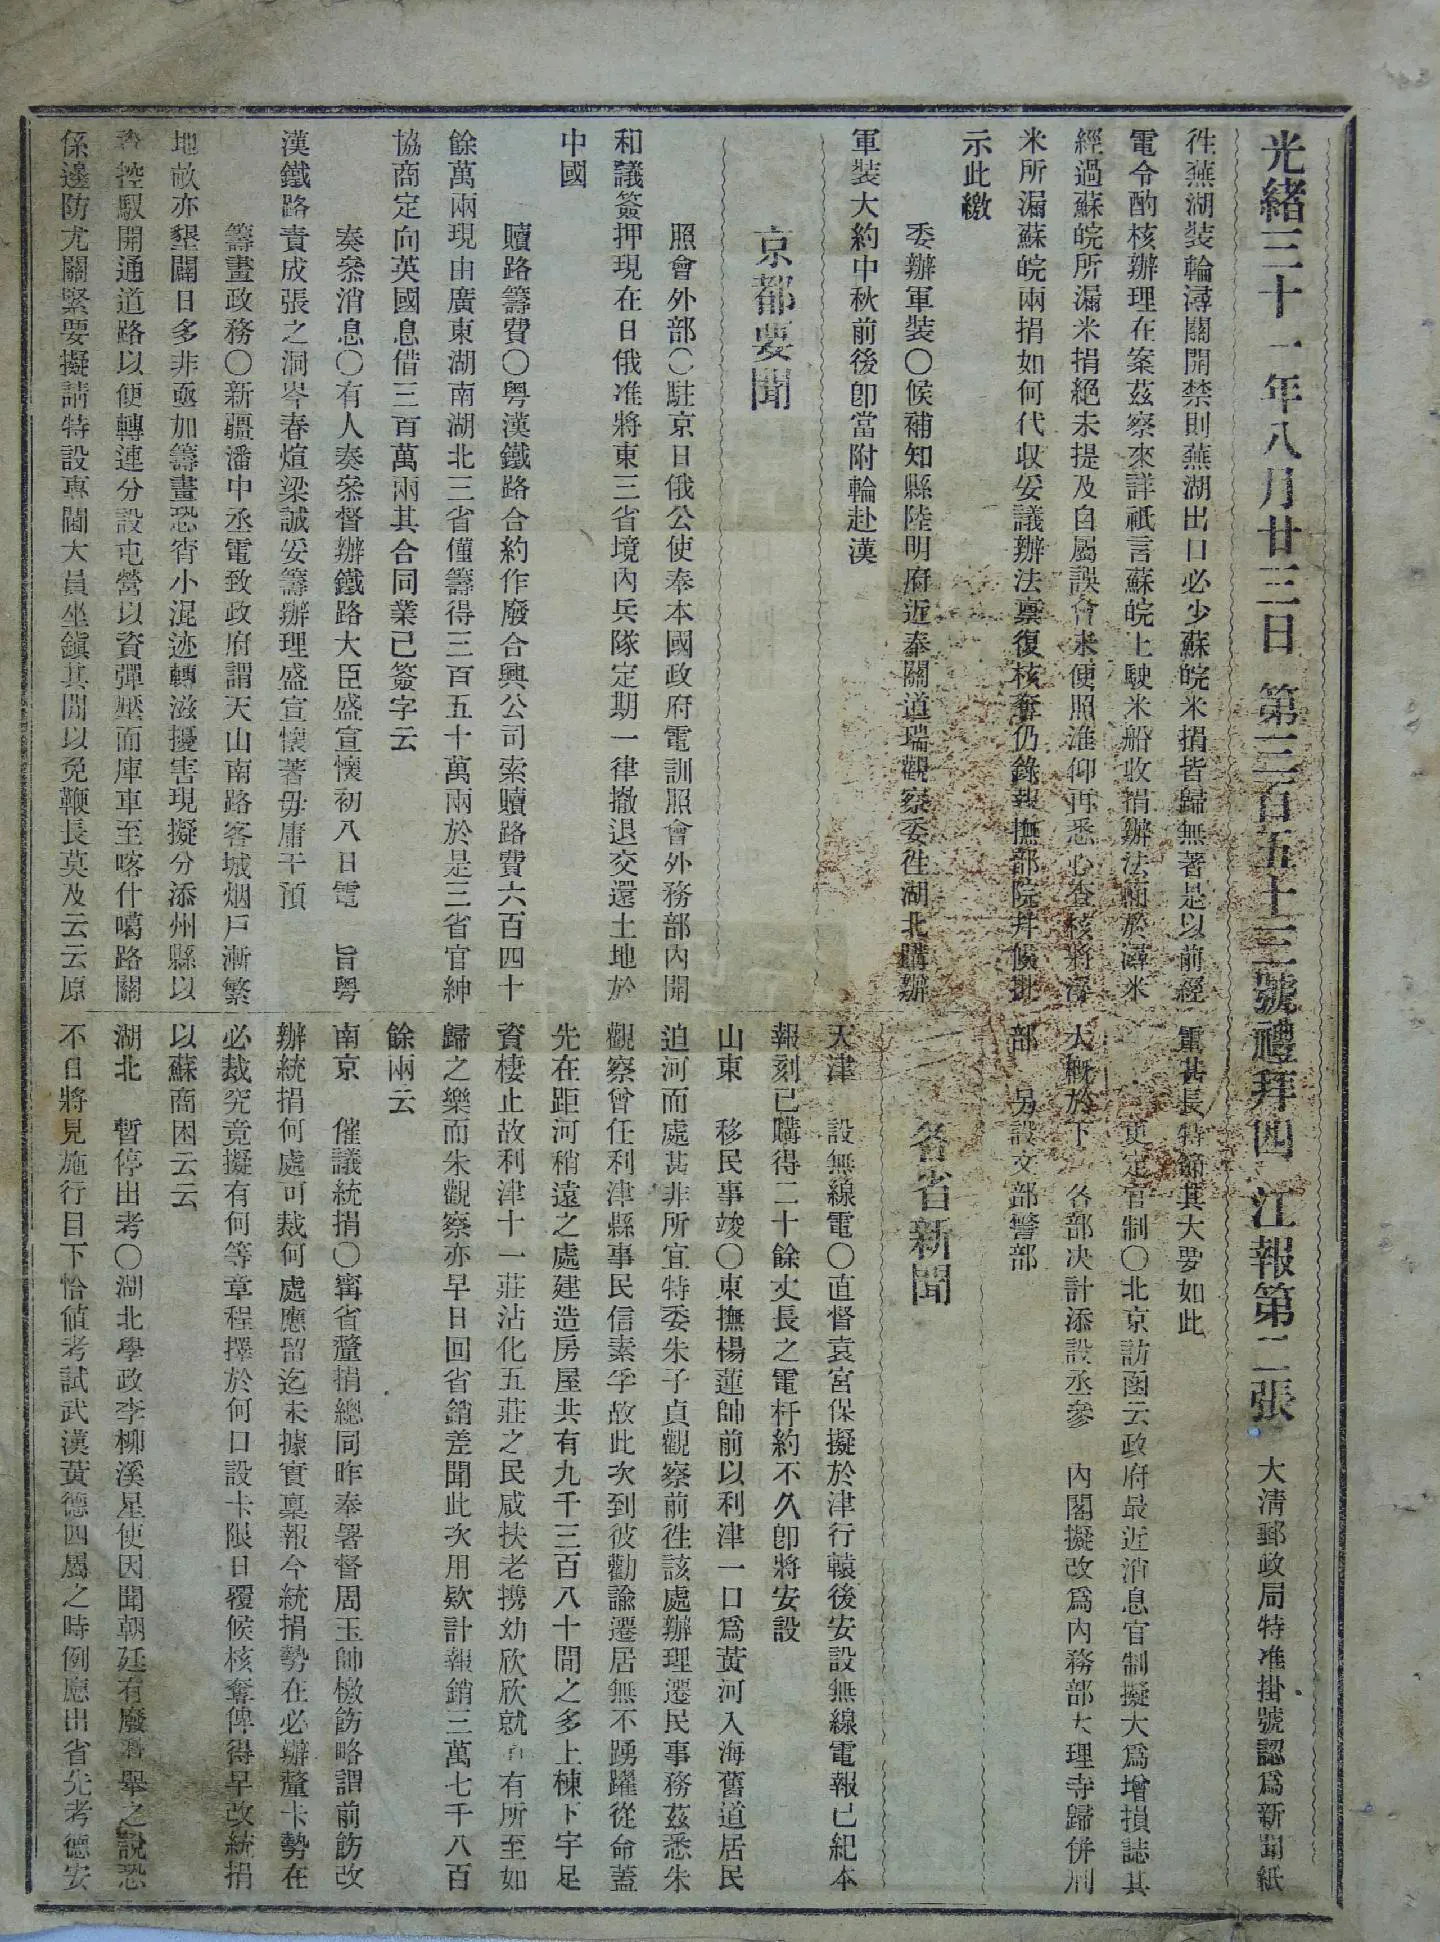 光緒三十一年八月廿三日 第三百五十三號禮拜四 江報第二張 大清郵政局特准掛號認爲新聞紙
徃蕪湖裝輪潯關開禁則蕪湖出口必少蘇皖米捐皆歸無著是以前經
電令酌核辦理在案茲察來詳祇言蘇皖上駛米船收捐辦法
經過蘇皖所漏米捐絕未提及自屬誤會未便照准仰再悉心查核將
米所漏蘇皖兩捐如何代収妥議辦法禀復核奪仍錄報撫部院并候批
示此繳
委辦軍裝〇候補知縣陸明府近奉關道瑞觀察委徃湖北購辦
軍裝大約中秋前後卽當附輪赴漢
京都要聞
照會外部〇駐京日俄公使奉本國政府電訓照會外務部內開
和議簽押現在日俄准將東三省境內兵隊定期一律撤退交還土地於
中國
贖路籌費〇粤漢鐵路合約作廢合興公司索贖路費六百四十
餘萬兩現由廣東湖南湖北三省僅籌得三百五十萬兩於是三省官紳
協商定向英國息借三百萬兩其合同業已簽字云
奏叅消息〇有人奏叅督辦鐵路大臣盛宣懷初八日電 旨粤
漢鐵路責成張之洞岑春煊梁誠妥籌辦理盛宣懷著毋庸干預
籌畫政務〇新疆潘中丞電致政府謂天山南路客城烟戶漸繁
地畝亦墾闢日多非亟加籌畫恐宵小混迹轉滋擾害現擬分添州縣以
資控馭開通道路以便轉運分設屯營以資彈壓而庫車至喀什噶路關
係邊防尤關緊要擬請特設專閫大員坐鎭其間以免鞭長莫及云云原
電甚長特節其大要如此
更定官制〇北京訪函云政府最近消息官制擬大爲增損誌其
大槪於下 各部决計添設丞參 內閣擬改爲內務部大理寺歸併刑
部 另設文部警部
各省新聞
天津 設無線電〇直督袁宮保擬於津行轅後安設無線電報已紀本
報刻已購得二十餘丈長之電杆約不久卽將安設
山東 移民事竣〇東撫楊蓮帥前以利津一口爲黃河入海舊道居民
迫河而處甚非所宜特委朱子貞觀察前徃該處辦理遷民事務茲悉朱
觀察曾任利津縣事民信素孚故此次到彼勸諭遷居無不踴躍從命蓋
先在距河稍遠之處建造房屋共有九千三百八十間之多上棟下宇足
資棲止故利津十一莊沾化五莊之民咸扶老携幼欣欣就 有所至如
歸之樂而朱觀察亦早日回省銷差聞此次用欵計報銷三萬七千八百
餘兩云
南京 催議統捐〇寗省釐捐總同昨奉署督周玉帥檄飭略謂前飭改
辦統捐何處可裁何處應留迄未據實稟報今統捐勢在必辦釐卡勢在
必裁究竟擬有何等章程擇於何口設卡限日覆候核奪俾得早改統捐
以蘇商困云云
湖北 暫停出考〇湖北學政李柳溪星使因聞朝廷有廢科舉之說恐
不日將見施行目下恰値考試武漢黃德四屬之時例應出省先考德安